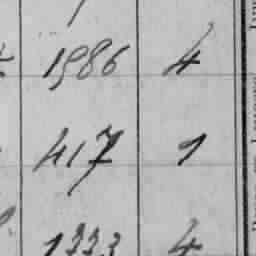 1986 4
417 1
1333 4